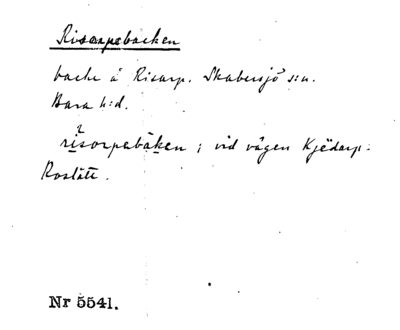 Risorpebacken
backe å Risarp. Skabersjö s:n.
Bara h:d.
risorpabakən ; vid vägen Kjedarp-
Roslätt.
Nr 5541.